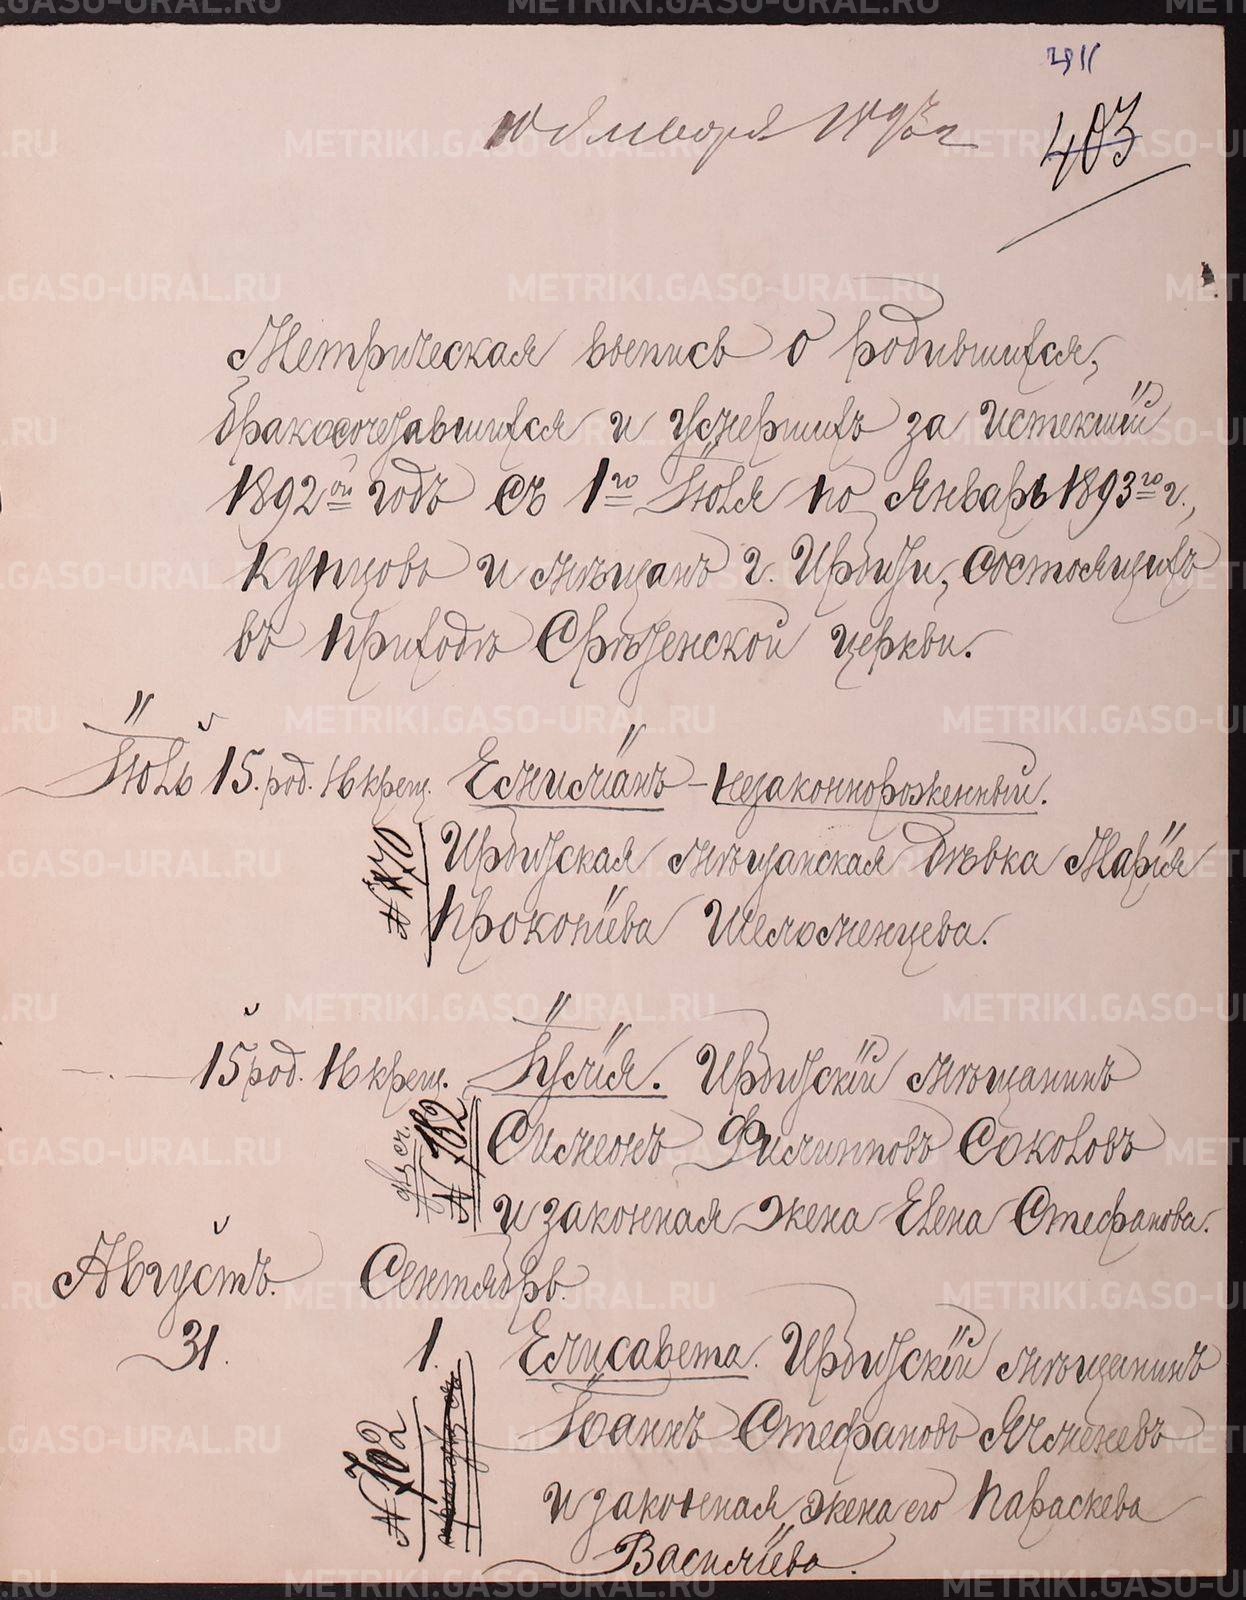 10 Января 1893 г
403
Метрическая выпись о родившихся,
бракосочетавшихся и умершихъ за истекшій
1892ой годъ съ 1го Іюля по Январь 1893го г.,
купцовъ и мѣщанъ г. Ирбити, состоящихъ
въ приходѣ Срѣтенской церкви.
Іюль 15. род. 16 крещ. Емиліанъ - незаконнорожденный.
Ирбитская мѣщанская дѣвка Марія
Прокопіева Шеломенцева.
15 род. 16 крещ. Іулія. Ирбитскій мѣщанинъ
№ 782
Симеонъ Филипповъ Соколовъ
и законная жена Елена Стефанова.
Августъ. Сентябрь.
31. 1. Елисавета. Ирбитскій мѣщанинъ
№ 702
Іоаннъ Стефановъ Ячменевъ
и законная жена его Параскева
Василіева.
METRIKI.GASO-URAL.RU